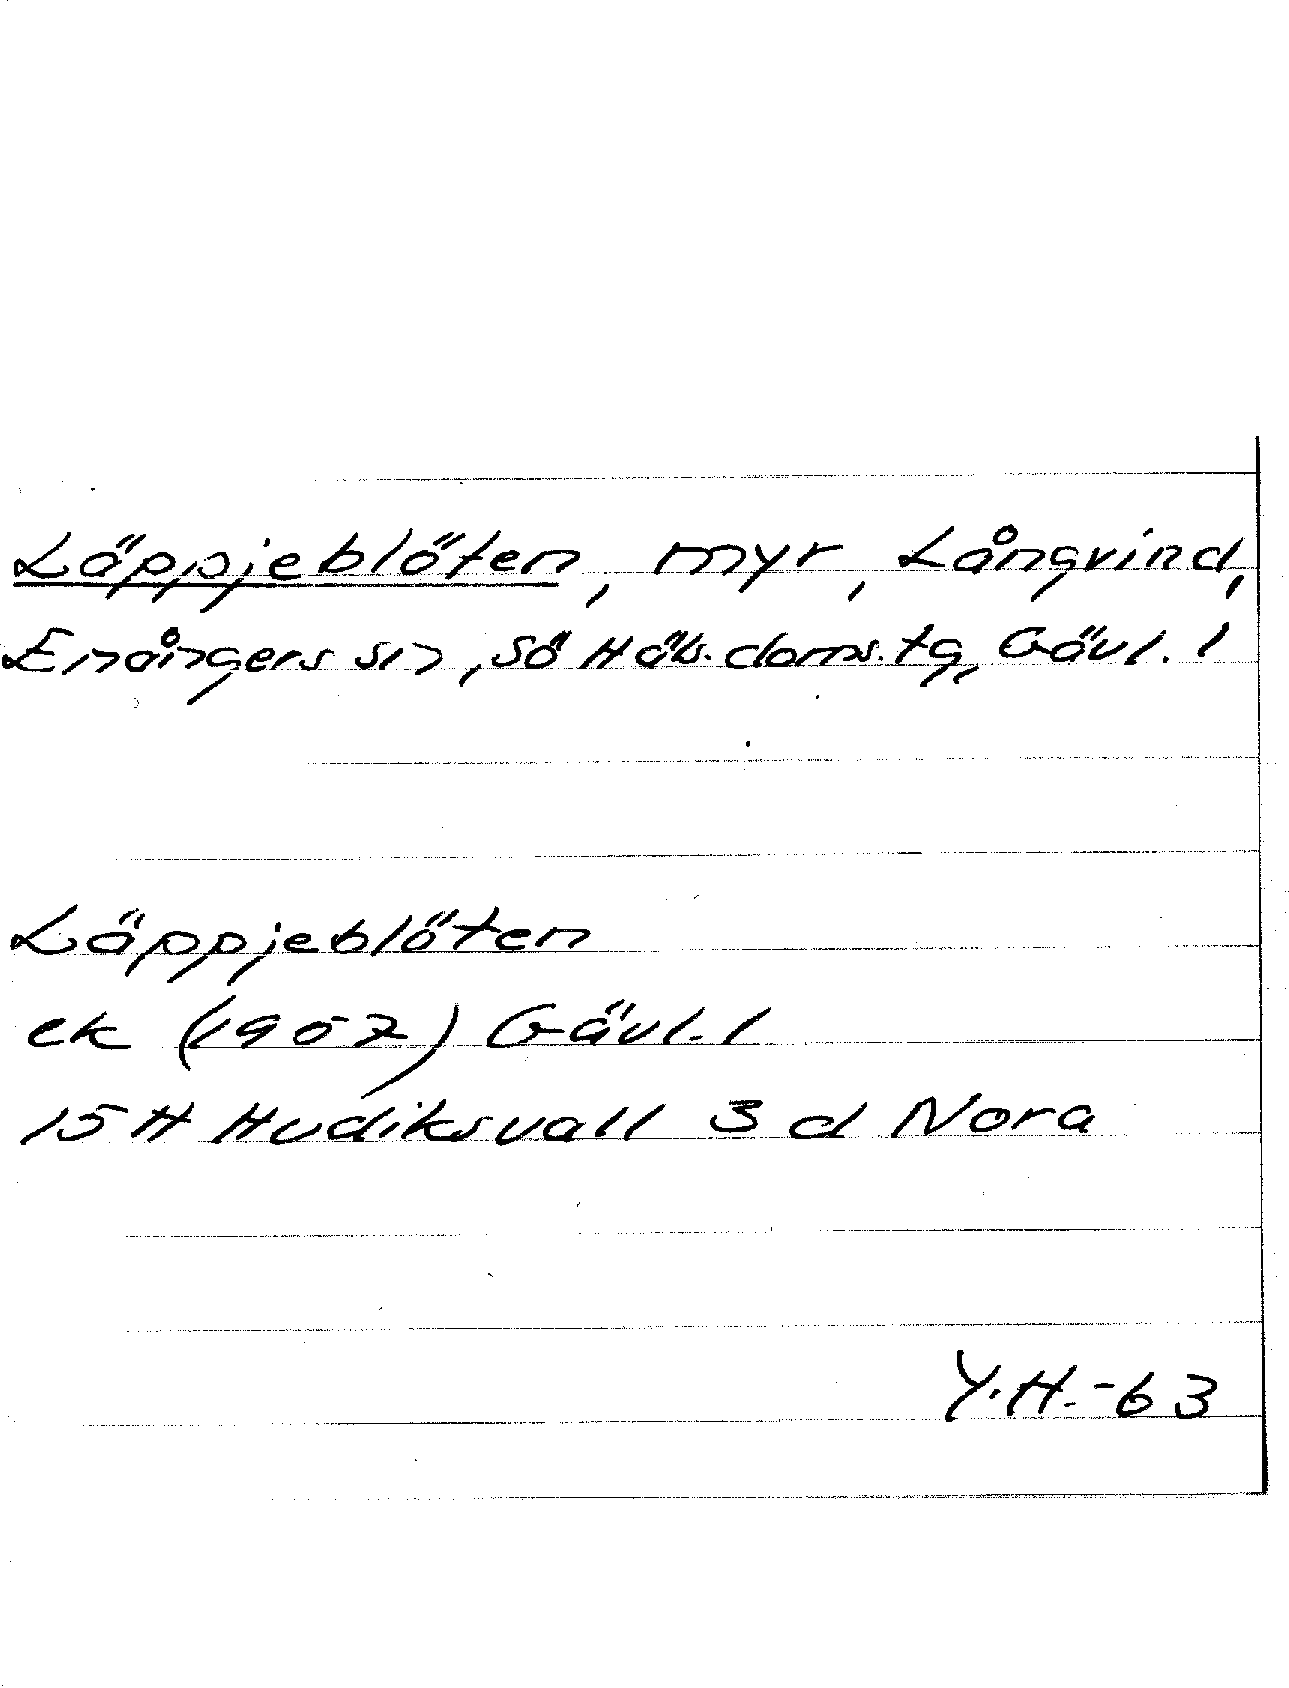 Läppjeblöten, myr, Långvind,
Enångers sn, Sö Häls. doms. tg, Gävl. l
Läppjeblöten
ek (1957) Gävl. l
15 H Hudiksvall 3 d Nora
Y.H.-63